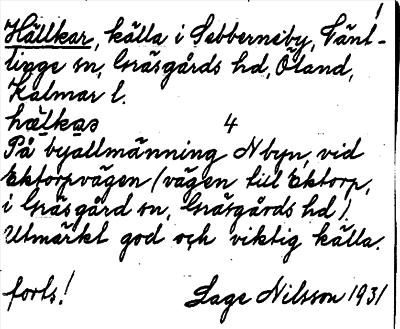 Hällkar, källa i Sebberneby, Vänt-
linge sn, Gräsgårds hd, Öland,
Kalmar l.
hælkas 4
På byallmänning N byn, vid
Ektorpvägen (vägen till Ektorp,
i Gräsgård sn, Gräsgårds hd).
Utmärkt god och viktig källa.
forts! Lage Nilsson 1931